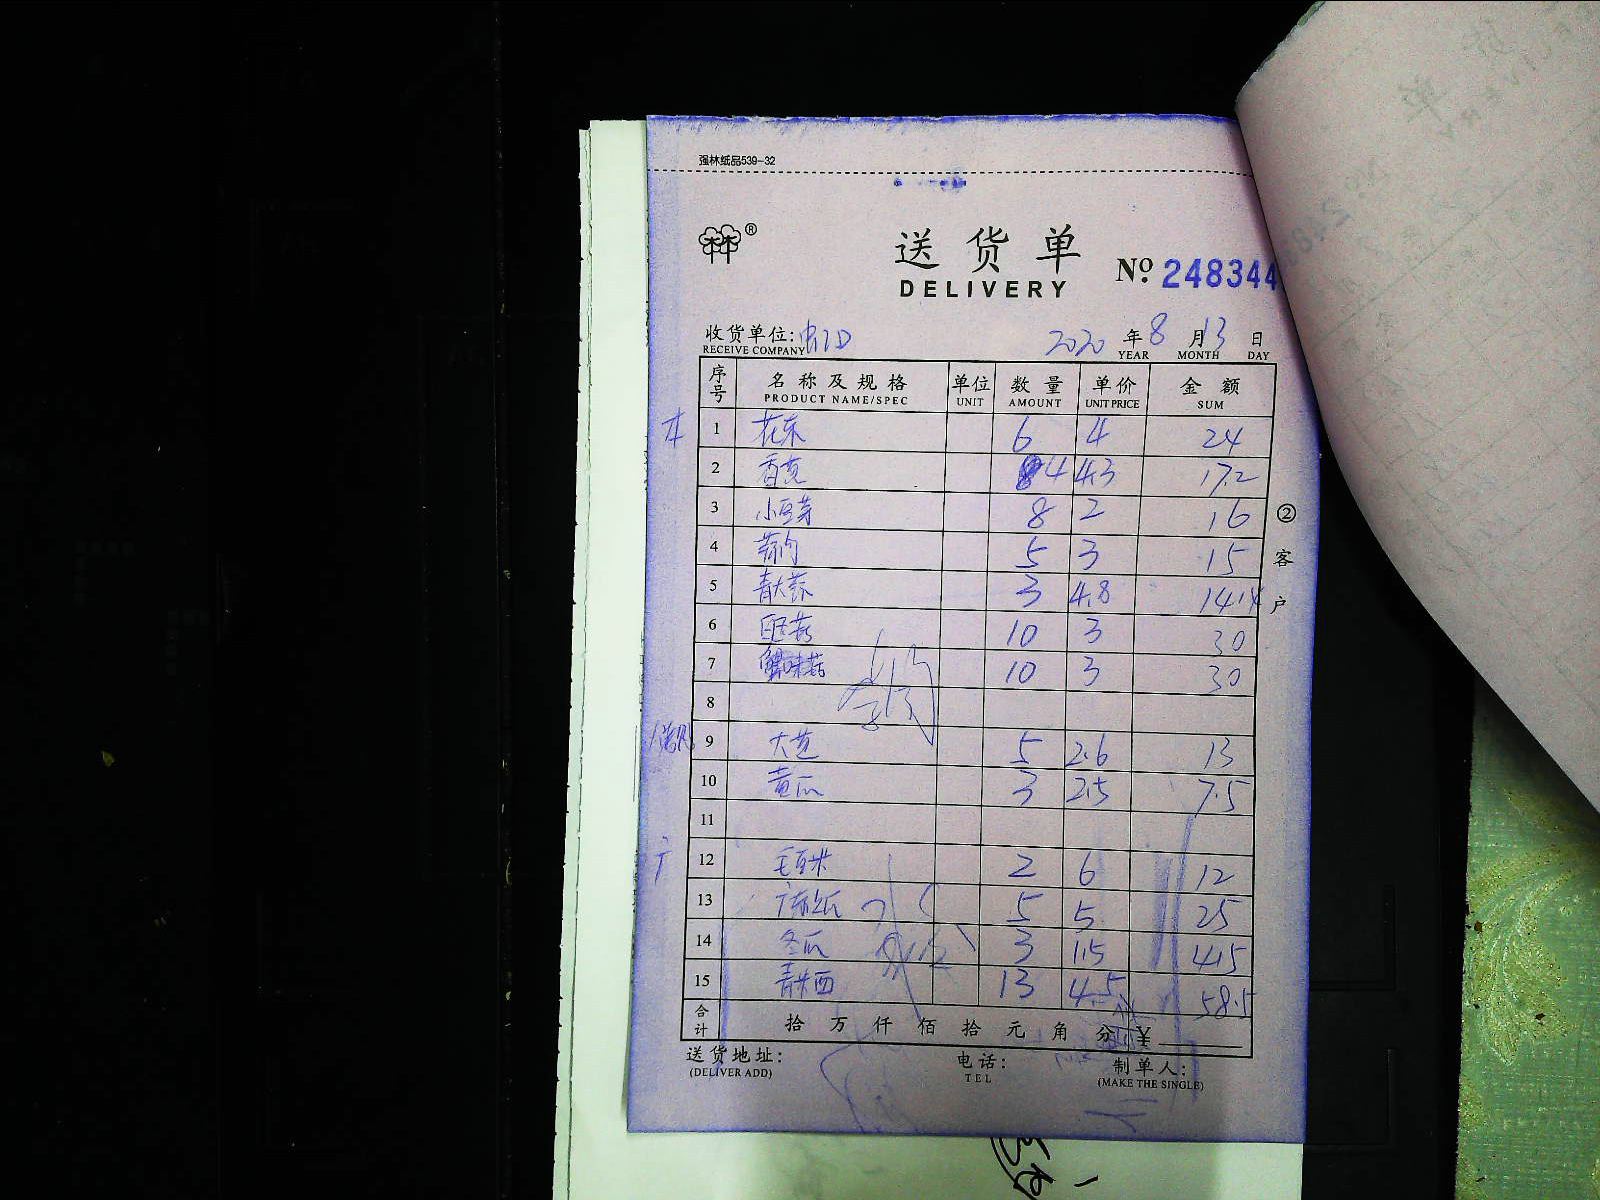 强林纸品539-32
®
送货单
DELIVERY
No. 248344
收货单位:
RECEIVE COMPANY
2020年8月13日
YEAR MONTH DAY
序号 名称及规格 单位 数量 单价 金额
PRODUCT NAME/SPEC UNIT AMOUNT UNIT PRICE SUM
1 花东 6 4 24
2 香芫 4 4.3 17.2
3 小豆芽 8 2 16
4 5 3 15
5 青大 3 4.8 14.4
6 10 3 30
7 蟹味菇 10 3 30
8
9 大芫 5 2.6 13
10 黄瓜 3 2.5 7.5
11
12 毛豆米 2 6 12
13 5 5 25
14 冬瓜 3 1.5 4.5
15 青米西 13 4.5 58.5
合计 拾 万 仟 佰 拾 元 角 分 ¥
送货地址: 电话: 制单人:
(DELIVER ADD) TEL (MAKE THE SINGLE)
②客户